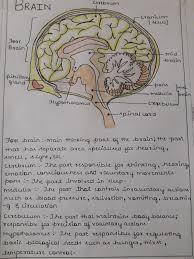 BRAIN
Cerebrum
cranium
(skull)
Fore
brain
mid
brain
pons
medulla
pituitary
gland
Hypothalamus
cerebellum
spinal cord
Fore brain: main thinking part of the brain; the part
that has separate area specialised for hearing,
smell, sight, etc.
Cerebrum :- The part responsible for thinking, hearing,
emotion consciousness and voluntary movements
Pons :- The part involved in sleep
medulla :- The part that controls involuntary actions
such as blood pressure, salivation, vomiting, breathing
& circulation
Cerebellum :- The part that maintains body balance;
responsible for precision of voluntary actions
Hypothalamus :- The part responsible for regulating
basic biological needs such as hunger, thirst,
Temperature control